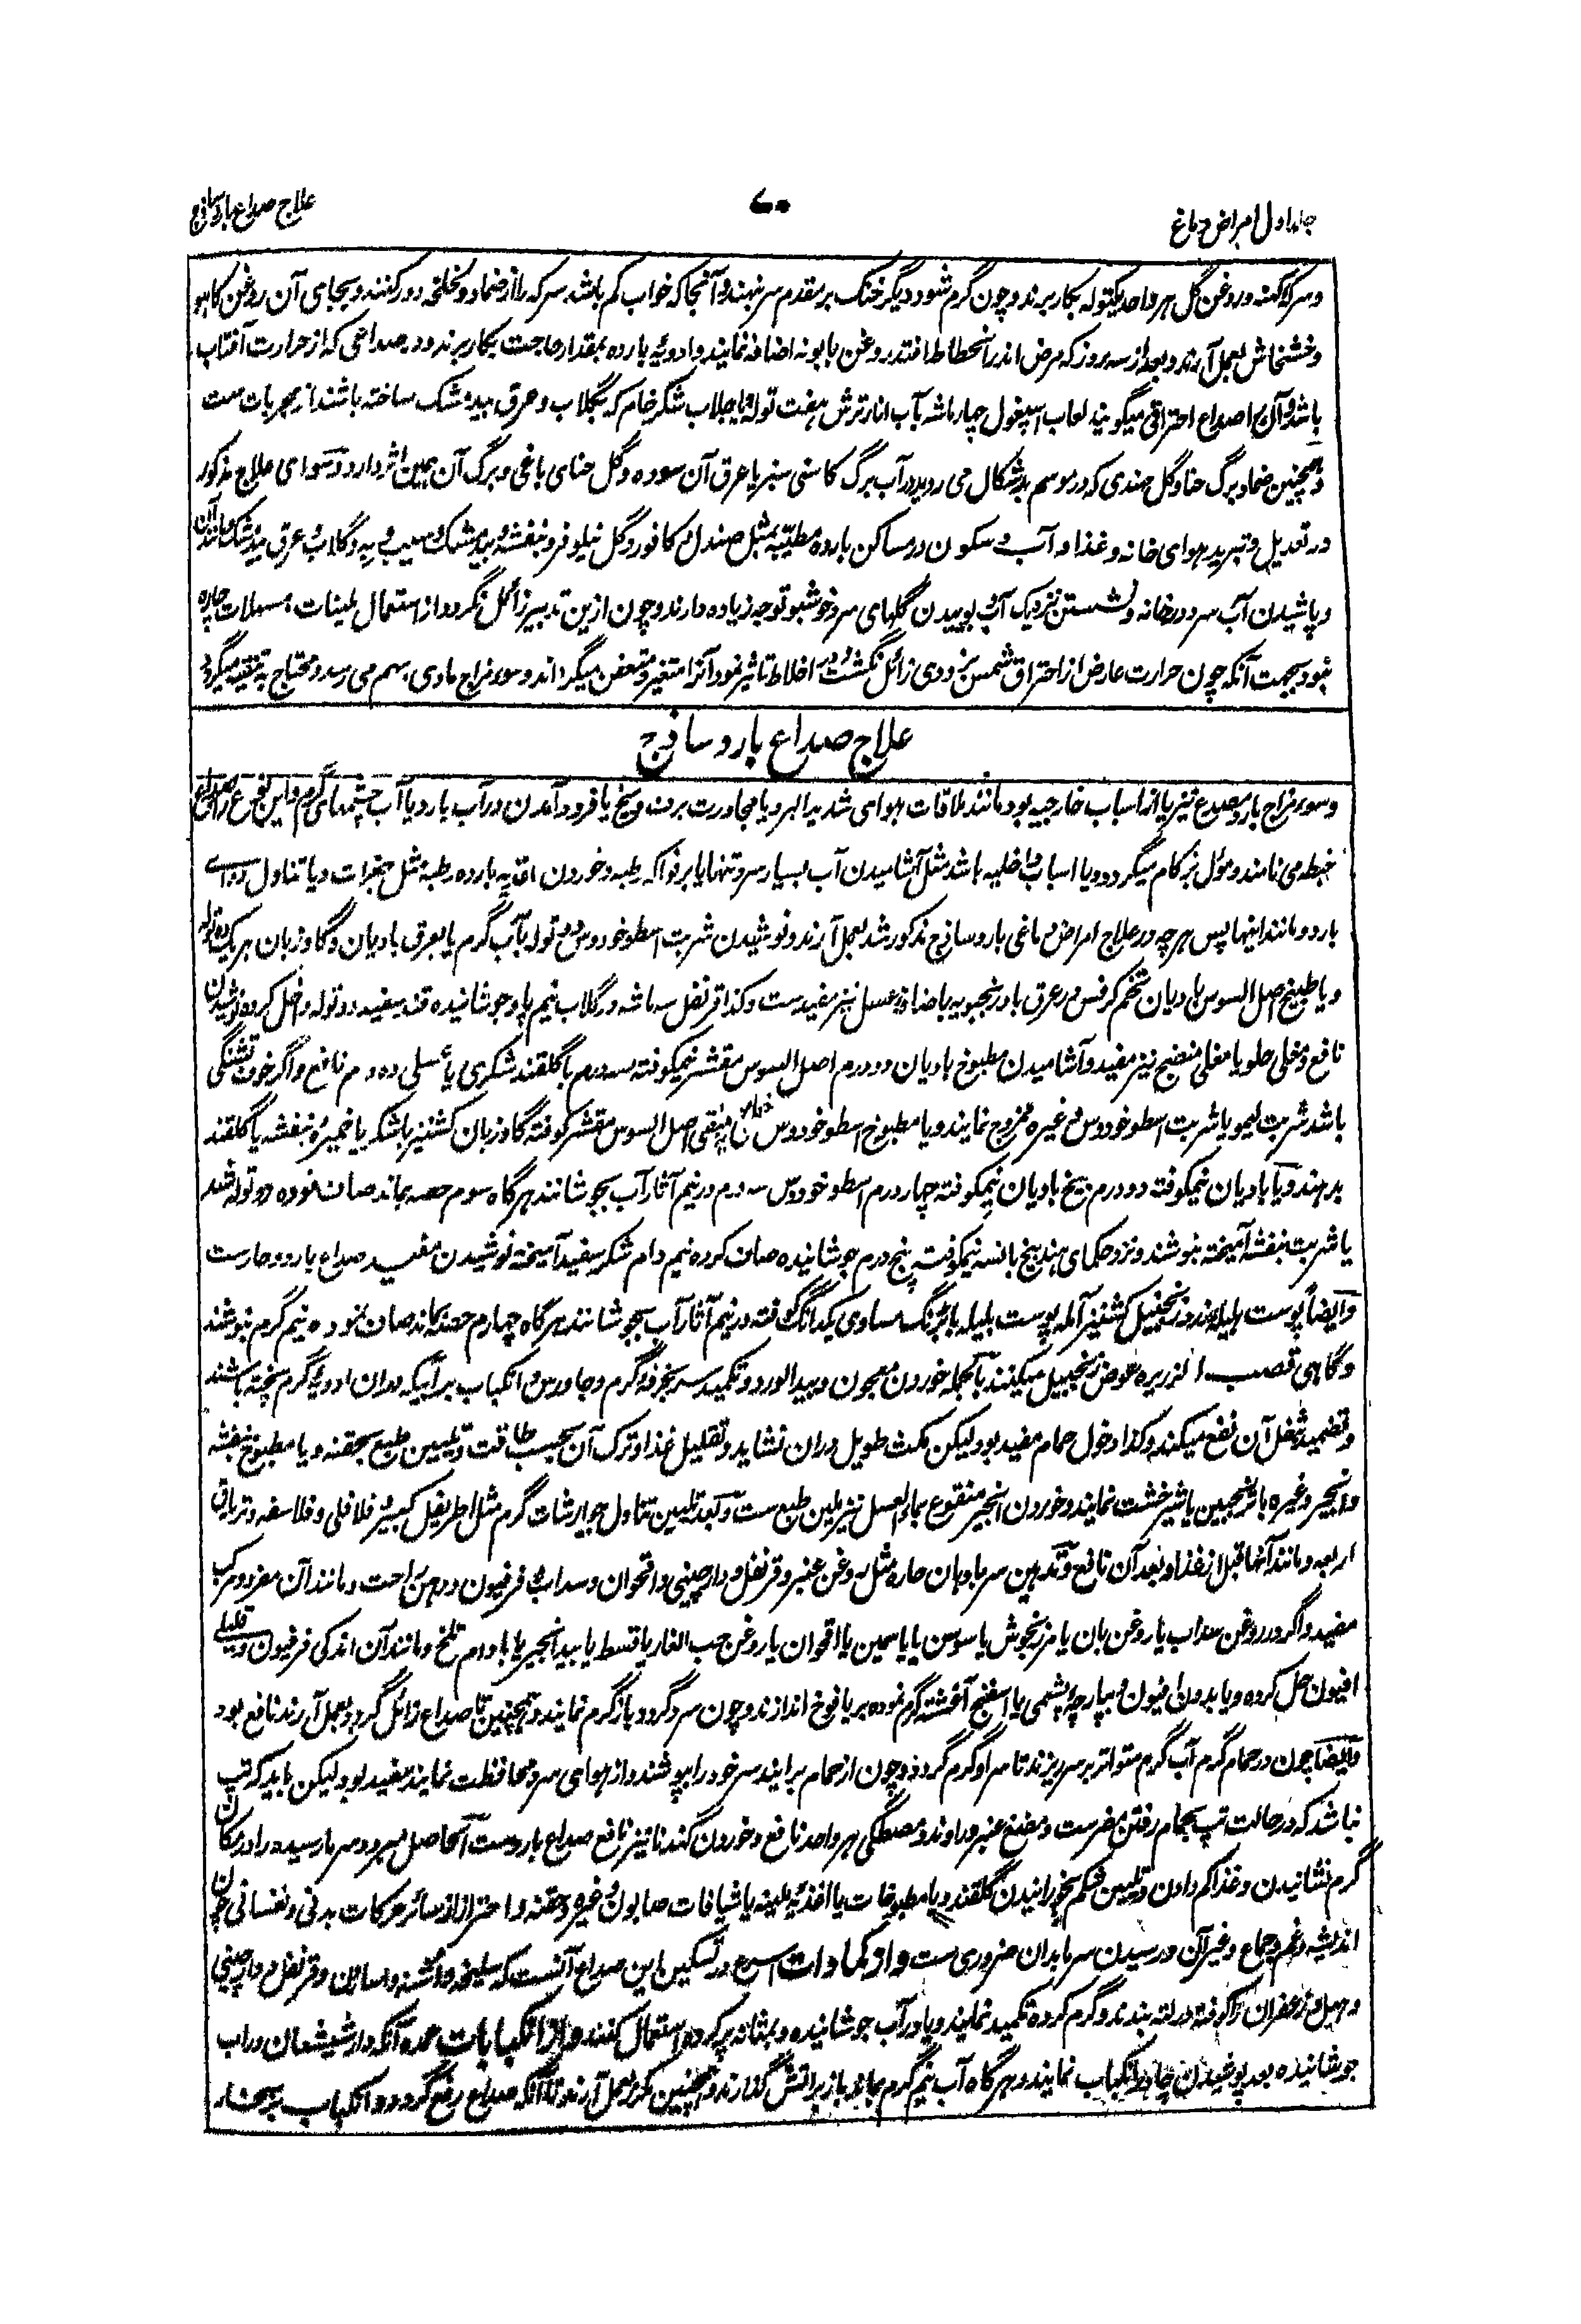 جلد اول امراض دماغ
۷۰
علاج صداع بارد ساذج
و سرکه کهنه و روغن گل هر واحد یکتوله بکار برند و چون گرم شود دیگر خنک بر مقدم سر نهند و آنجا که خواب کم باشد سرکه را از ضماد و لخلخه دور کنند و بجای آن روغن کاهو
و خشخاش بعمل آرند و بعد از سه روز که مرض اندر انحطاط افتد روغن بابونه اضافه نمایند و ادویه بارده بمقدار حاجت بکار برند و در صداعی که از حرارت آفتاب
باشد و آن را صداع احتراقی میگویند لعاب اسپغول چهار ماشه بآب انار ترش هفت توله یا جلاب شکر خام که بگلاب و عرق بیدمشک ساخته باشند از مجربات ست
و همچنین ضماد برگ حنا و گل مهندی که در موسم برشکال می روید در آب برگ کاسنی سبز یا عرق آن سوده و گل حنای باغی و برگ آن همین اثر دارد و سوای علاج مذکور
در تعدیل و تبرید هوای خانه و غذا و آب و سکون در مساکن بارده مطیبه بمثل صندل و کافور و گل نیلوفر و بنفشه و بیدمشک و سیب و به و گلاب و عرق بیدمشک و مانند آن
و پاشیدن آب سرد در خانه و نشستن نزدیک آب و بوییدن گلهای سرد خوشبو توجه زیاده دارند و چون ازین تدبیر زائل نگردد از استعمال ملینات و مسهلات چاره
نبود بجهت آنکه چون حرارت عارض از احتراق شمس بزودی زائل نگشت در اخلاط تاثیر نمود آنرا متغیر و متعفن میگرداند و سوء مزاج مادی بهم می رسد و محتاج به تنقیه میگردد
علاج صداع بارد ساذج
و سوء مزاج بارد مصدع نیز یا از اسباب خارجیه بود مانند ملاقات هوای شدید البرد یا مجاورت برف و یخ یا فرود آمدن در آب بارد یا آب چشمهای گرم و این نوع را صداع
خبطه می نامند و مؤل بزکام میگردد و یا اسباب داخلیه باشد مثل آشامیدن آب بسیار سرد تنها یا بر فواکه رطبه و خوردن اغذیه بارده رطبه مثل جغرات و یا تناول دوای
بارد و مانند اینها پس هرچه در علاج امراض دماغی بارد ساذج مذکور شد بعمل آرند و نوشیدن شربت اسطوخودوس دو توله بآب گرم یا بعرق بادیان و گاوزبان هر یک ده توله
و یا طبیخ اصل السوس بادیان تخم کرفس در عرق بادرنجبویه باضافه عسل نیز مفیدست و کذا قرنفل سه ماشه در گلاب نیم پاو جوشانیده قند سفید دو توله داخل کرده نوشیدن
نافع و مغلی حلو یا مغلی منضج نیز مفید و آشامیدن مطبوخ بادیان دو درم اصل السوس مقشر نیمکوفته سه درم با گلقند شکری یا عسلی ده درم نافع و اگر خوف تشنگی
باشد شربت لیمو یا شربت اسطوخودوس وغیره ممزوج نمایند و یا مطبوخ اسطوخودوس منقی اصل السوس مقشر کوفته گاوزبان کشنیز باشکر یا خمیره بنفشه یا گلقند
بدهند و یا بادیان نیمکوفته دو درم بیخ بادیان نیمکوفته چهار درم اسطوخودوس سه درم در نیم آثار آب بجوشانند هرگاه سوم حصه بماند صاف نموده دو توله شهد
یا شربت بنفشه آمیخته بنوشند و نزد حکمای هند بیخ بانسه نیمکوفته پنج درم جوشانیده صاف کرده نیم دام شکر سفید آمیخته نوشیدن مفید صداع بارد و حارست
و ایضاً پوست هلیله زرد زنجبیل کشنیز آمله پوست بلیله بابرنگ مساوی یکدانگ کوفته در نیم آثار آب بجوشانند هرگاه چهارم حصه بماند صاف نموده نیم گرم بنوشند
و گاهی قصب الذریره عوض زنجبیل میکنند بالجمله خوردن معجون دبیدالورد و تکمید سر بخرقه گرم و جاورس و انکباب بر آبیکه دران ادویه گرم پخته باشند
و تضمید ثفل آن نفع میکند و کذا دخول حمام مفید بود و لیکن مکث طویل دران نشاید و تقلیل غذا و ترک آن بحسب طاقت و تلیین طبع بحقنه و یا مطبوخ بنفشه
و انجیر وغیره با ترنجبین یا شیرخشت نمایند و خوردن انجیر منقوع بماءالعسل نیز ملین طبع ست و بعد تلیین تناول جوارشات گرم مثل اطریفل کبیر و فلافلی و فلاسفه و تریاق
اربعه و مانند آنها قبل از غذا و بعد آن نافع و تدهین سر بادهان حاره مثل روغن عنبر و قرنفل و دارچینی و اقحوان و سداب و فرفیون و دهن راحت و مانند آن مفرد و مرکب
مفید و اگر در روغن سداب یا روغن بان یا مرزنجوش یا سوسن یا یاسمین یا اقحوان یا روغن حب الغار یا قسط یا بیدانجیر یا بادام تلخ و مانند آن اندکی فرفیون و قلیلی
افیون حل کرده و یا بدون افیون و بپارچه پشمی یا اسفنج آغشته گرم نموده بر یافوخ اندازند و چون سرد گردد باز گرم نمایند و همچنین تا صداع زائل گردد بعمل آرند نافع بود
و ایضا چون در حمام گرم آب گرم متواتر بر سر ریزند تا سر او گرم گردد و چون از حمام برایند سر خود را بپوشند و از هوای سرد محافظت نمایند مفید بود لیکن باید که تپ
نباشد که در حالت تپ بحمام رفتن مضرست و مضغ عنبر و راوند و مصطگی هر واحد نافع و خوردن گندنا نیز نافع صداع باردست الحاصل مبرود سرما رسیده را در مکان
گرم نشانیدن و غذا کم دادن و تلیین شکم بخورانیدن گلقند و یا مطبوخات یا اغذیه ملینه یا شیافات صابون وغیره و حقنه و احتراز از سائر حرکات بدنی و نفسانی چون
اندیشه و غم و جماع و غیر آن و رسیدن سرما بدان ضروری ست و از کمادات اسرع در تسکین این صداع آنست که سلیخه و اشنه و بسان و قرنفل و دارچینی
و هیل و زعفران را کوفته در لته بندند و گرم کرده تکمید نمایند و یا در آب جوشانیده و بمثانه پر کرده استعمال کنند و از انکبابات عمده آنکه دارشیشعان در آب
جوشانیده بعد پوشیدن چادر انکباب نمایند و هرگاه آب نیم گرم بماند باز بر آتش گذارند و همچنین مکرر بعمل آرند تا آنکه صداع رفع گردد و انکباب بر بخار